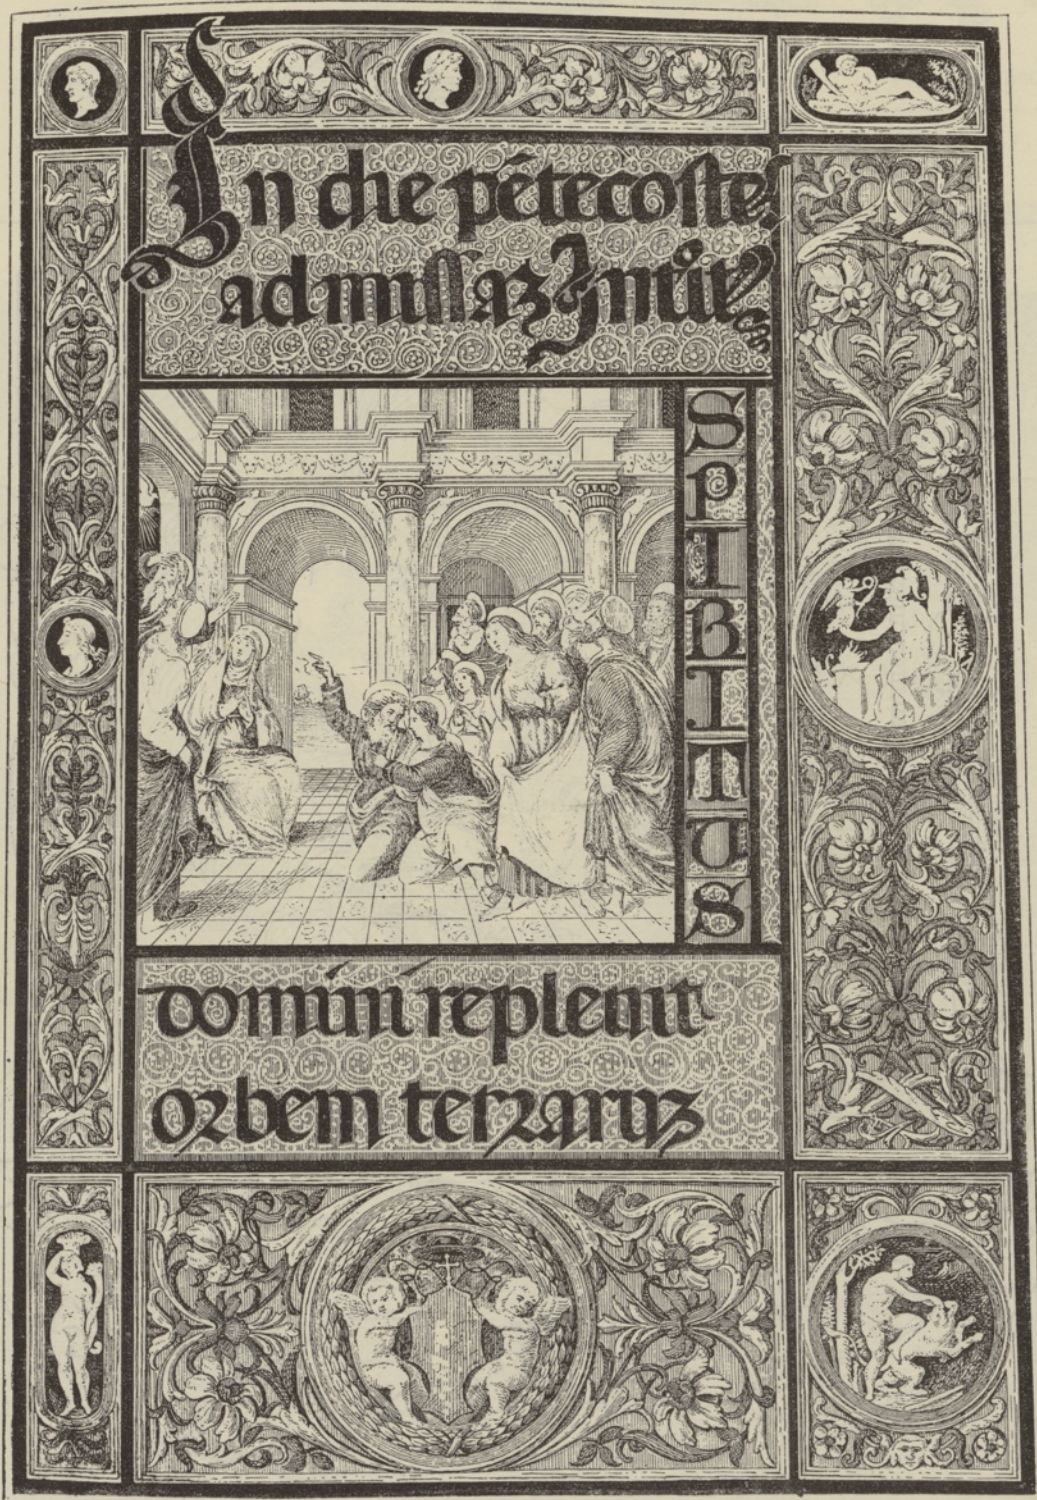 In die pētecostes
ad missaz Intrit
SPIRITUS
domini repleuit
orbem terraruz